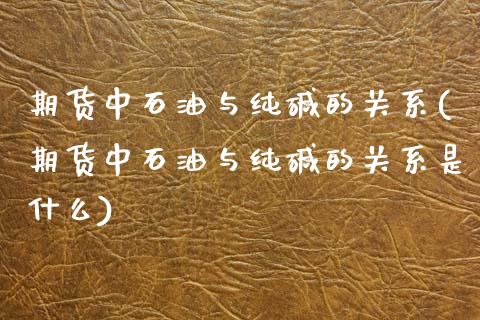 期货中石油与纯碱的关系(
期货中石油与纯碱的关系是
什么)